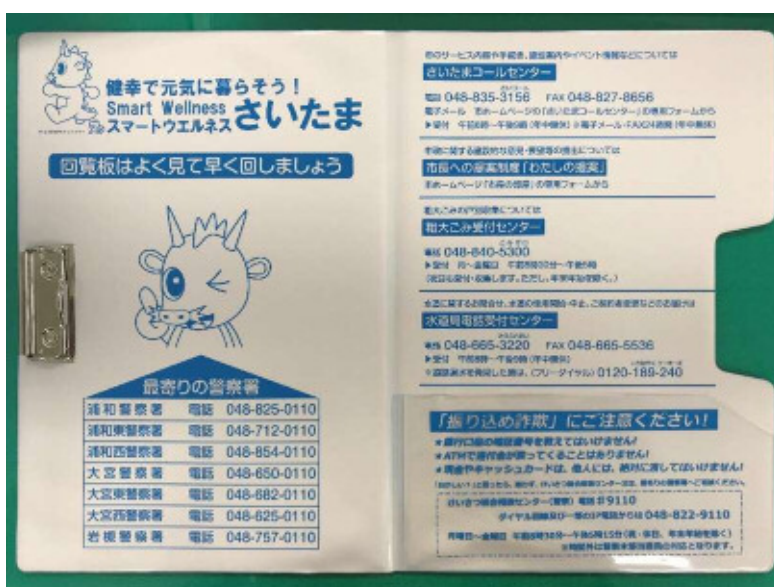 健幸で元気に暮らそう！
Smart Wellness
スマートウエルネス さいたま
回覧板はよく見て早く回しましょう
最寄りの警察署
浦和警察署 電話 048-825-0110
浦和東警察署 電話 048-712-0110
浦和西警察署 電話 048-854-0110
大宮警察署 電話 048-650-0110
大宮東警察署 電話 048-682-0110
大宮西警察署 電話 048-625-0110
岩槻警察署 電話 048-757-0110
市のサービス内容や手続き、施設案内やイベント情報などについては
さいたまコールセンター
電話 048-835-3156 FAX 048-827-8656
電子メール 市ホームページの「さいたまコールセンター」の専用フォームから
▶受付 午前8時～午後9時（年中無休）※電子メール・FAX24時間（年中無休）
市政に関する建設的な意見・要望等の提案については
市長への提案制度「わたしの提案」
市ホームページ「市長の部屋」の専用フォームから
粗大ごみの戸別収集については
粗大ごみ受付センター
電話 048-840-5300
▶受付 月～金曜日 午前8時30分～午後5時
（祝日も受付・収集します。ただし、年末年始を除く。）
水道に関するお問合せ、水道の使用開始・中止、ご契約者変更などのお届けは
水道局電話受付センター
電話 048-665-3220 FAX 048-665-5536
▶受付 午前8時～午後9時（年中無休）
※道路漏水を発見した際は、（フリーダイヤル）0120-189-240
「振り込め詐欺」にご注意ください！
★銀行口座の暗証番号を教えてはいけません！
★ATMで還付金が戻ってくることはありません！
★現金やキャッシュカードは、他人には、絶対に渡してはいけません！
けいさつ総合相談センター（警察）電話 #9110
ダイヤル回線及び一部のIP電話からは 048-822-9110
月曜日～金曜日 午前8時30分～午後5時15分（祝・休日、年末年始を除く）
※時間外は警察本部当直員の対応となります。